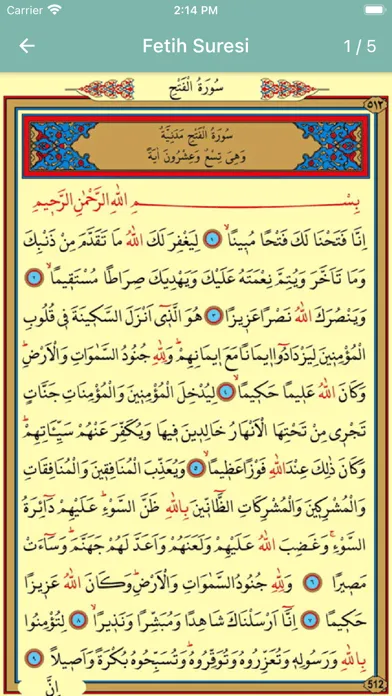 Carrier 2:14 PM
Fetih Suresi 1 / 5
سُورَةُ الْفَتْحِ
٥١٢
سُورَةُ الْفَتْحِ مَدَنِيَّةٌ
وَهِىَ تِسْعٌ وَعِشْرُونَ اٰيَةً
بِسْــــمِ اللّٰهِ الرَّحْمٰنِ الرَّحٖيمِ
اِنَّا فَتَحْنَا لَكَ فَتْحًا مُبٖينًاۙ ١ لِيَغْفِرَ لَكَ اللّٰهُ مَا تَقَدَّمَ مِنْ ذَنْبِكَ
وَمَا تَاَخَّرَ وَيُتِمَّ نِعْمَتَهُ عَلَيْكَ وَيَهْدِيَكَ صِرَاطًا مُسْتَقٖيمًاۙ ٢
وَيَنْصُرَكَ اللّٰهُ نَصْرًا عَزٖيزًا ٣ هُوَ الَّذٖٓى اَنْزَلَ السَّكٖينَةَ فٖى قُلُوبِ
الْمُؤْمِنٖينَ لِيَزْدَادُٓوا اٖيمَانًا مَعَ اٖيمَانِهِمْؕ وَلِلّٰهِ جُنُودُ السَّمٰوَاتِ وَالْاَرْضِؕ
وَكَانَ اللّٰهُ عَلٖيمًا حَكٖيمًاۙ ٤ لِيُدْخِلَ الْمُؤْمِنٖينَ وَالْمُؤْمِنَاتِ جَنَّاتٍ
تَجْرٖى مِنْ تَحْتِهَا الْاَنْهَارُ خَالِدٖينَ فٖيهَا وَيُكَفِّرَ عَنْهُمْ سَيِّـَٔاتِهِمْؕ
وَكَانَ ذٰلِكَ عِنْدَ اللّٰهِ فَوْزًا عَظٖيمًاۙ ٥ وَيُعَذِّبَ الْمُنَافِقٖينَ وَالْمُنَافِقَاتِ
وَالْمُشْرِكٖينَ وَالْمُشْرِكَاتِ الظَّٓانّٖينَ بِاللّٰهِ ظَنَّ السَّوْءِؕ عَلَيْهِمْ دَٓائِرَةُ
السَّوْءِۚ وَغَضِبَ اللّٰهُ عَلَيْهِمْ وَلَعَنَهُمْ وَاَعَدَّ لَهُمْ جَهَنَّمَؕ وَسَٓاءَتْ
مَصٖيرًا ٦ وَلِلّٰهِ جُنُودُ السَّمٰوَاتِ وَالْاَرْضِؕ وَكَانَ اللّٰهُ عَزٖيزًا
حَكٖيمًا ٧ اِنَّٓا اَرْسَلْنَاكَ شَاهِدًا وَمُبَشِّرًا وَنَذٖيرًاۙ ٨ لِتُؤْمِنُوا
بِاللّٰهِ وَرَسُولِهٖ وَتُعَزِّرُوهُ وَتُوَقِّرُوهُؕ وَتُسَبِّحُوهُ بُكْرَةً وَاَصٖيلًا ٩
اِنَّ
512